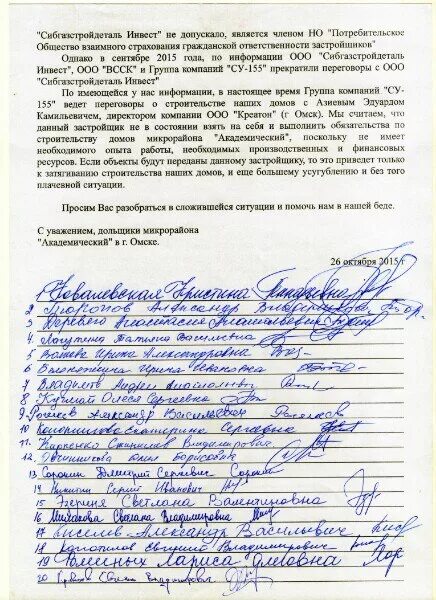 "Сибгазстройдеталь Инвест" не допускало, является членом НО "Потребительское
Общество взаимного страхования гражданской ответственности застройщиков"
Однако в сентябре 2015 года, по информации ООО "Сибгазстройдеталь
Инвест", ООО "ВССК" и Группа компаний "СУ-155" прекратили переговоры с ООО
"Сибгазстройдеталь Инвест"
По имеющейся у нас информации, в настоящее время Группа компаний "СУ-
155" ведет переговоры о строительстве наших домов с Азиевым Эдуардом
Камильевичем, директором компании ООО "Креатон" (г Омск). Мы считаем, что
данный застройщик не в состоянии взять на себя и выполнить обязательства по
строительству домов микрорайона "Академический", поскольку не имеет
необходимого опыта работы, необходимых производственных и финансовых
ресурсов. Если объекты будут переданы данному застройщику, то это приведет только
к затягиванию строительства наших домов, и еще большему усугублению и без
того плачевной ситуации.
Просим Вас разобраться в сложившейся ситуации и помочь нам в нашей беде.
С уважением, дольщики микрорайона
"Академический" в г. Омске.
26 октября 2015 г
1 Ковалевская Кристина
2 Александр
3 Анастасия Анатольевна
4 Татьяна Васильевна
5 Ирина Александровна
6 Ирина Ивановна
7 Андрей Анатольевич
8 Олеся Сергеевна
9 Александр Васильевич
10 Екатерина Сергеевна
11 Кириенко Станислав Владимирович
12 Овчинникова Юлия Борисовна
13 Сорокин Дмитрий Сергеевич
14 Никитин Сергей Иванович
15 Светлана Валентиновна
16 Светлана Владимировна
17 Киселев Александр Васильевич
18 Владимирович
19 Лариса Олеговна
20 Владимировна